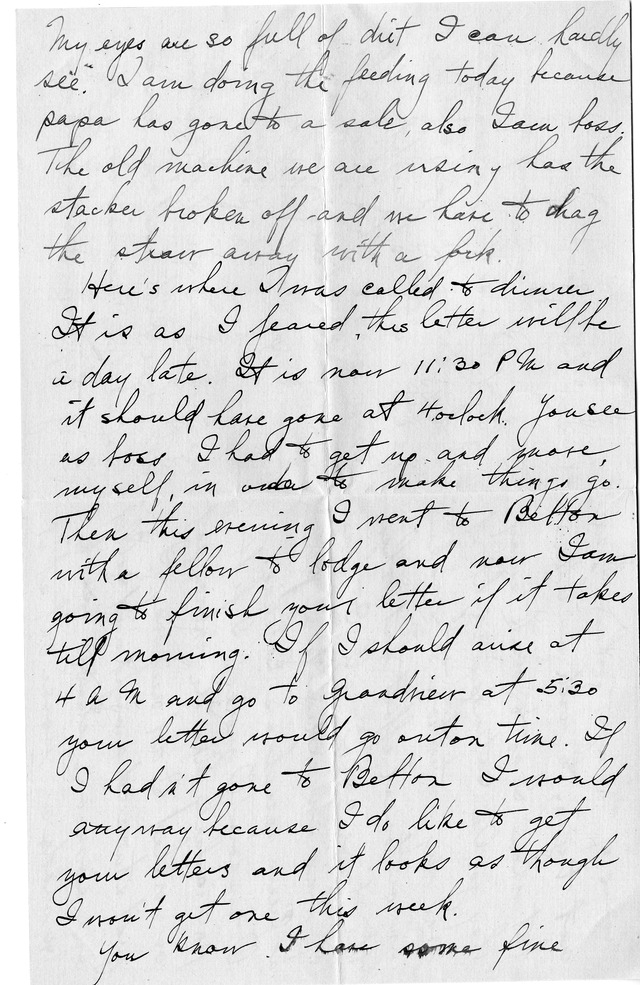 My eyes are so full of dirt I can hardly
see." I am doing the feeding today because
papa has gone to a sale, also I am boss.
The old machine we are using has the
stacker broken off and we have to drag
the straw away with a fork.
Here's where I was called to dinner
It is as I feared, this letter will be
a day late. It is now 11:30 PM and
it should have gone at 4oclock. You see
as boss I had to get up and move,
myself, in order to make things go.
Then this evening I went to Belton
with a fellow to lodge and now I am
going to finish your letter if it takes
till morning. If I should arise at
4 AM and go to Grandview at 5:30
your letter would go out on time. If
I hadn't gone to Belton I would
anyway because I do like to get
your letters and it looks as though
I won't get one this week.
You know I have some fine